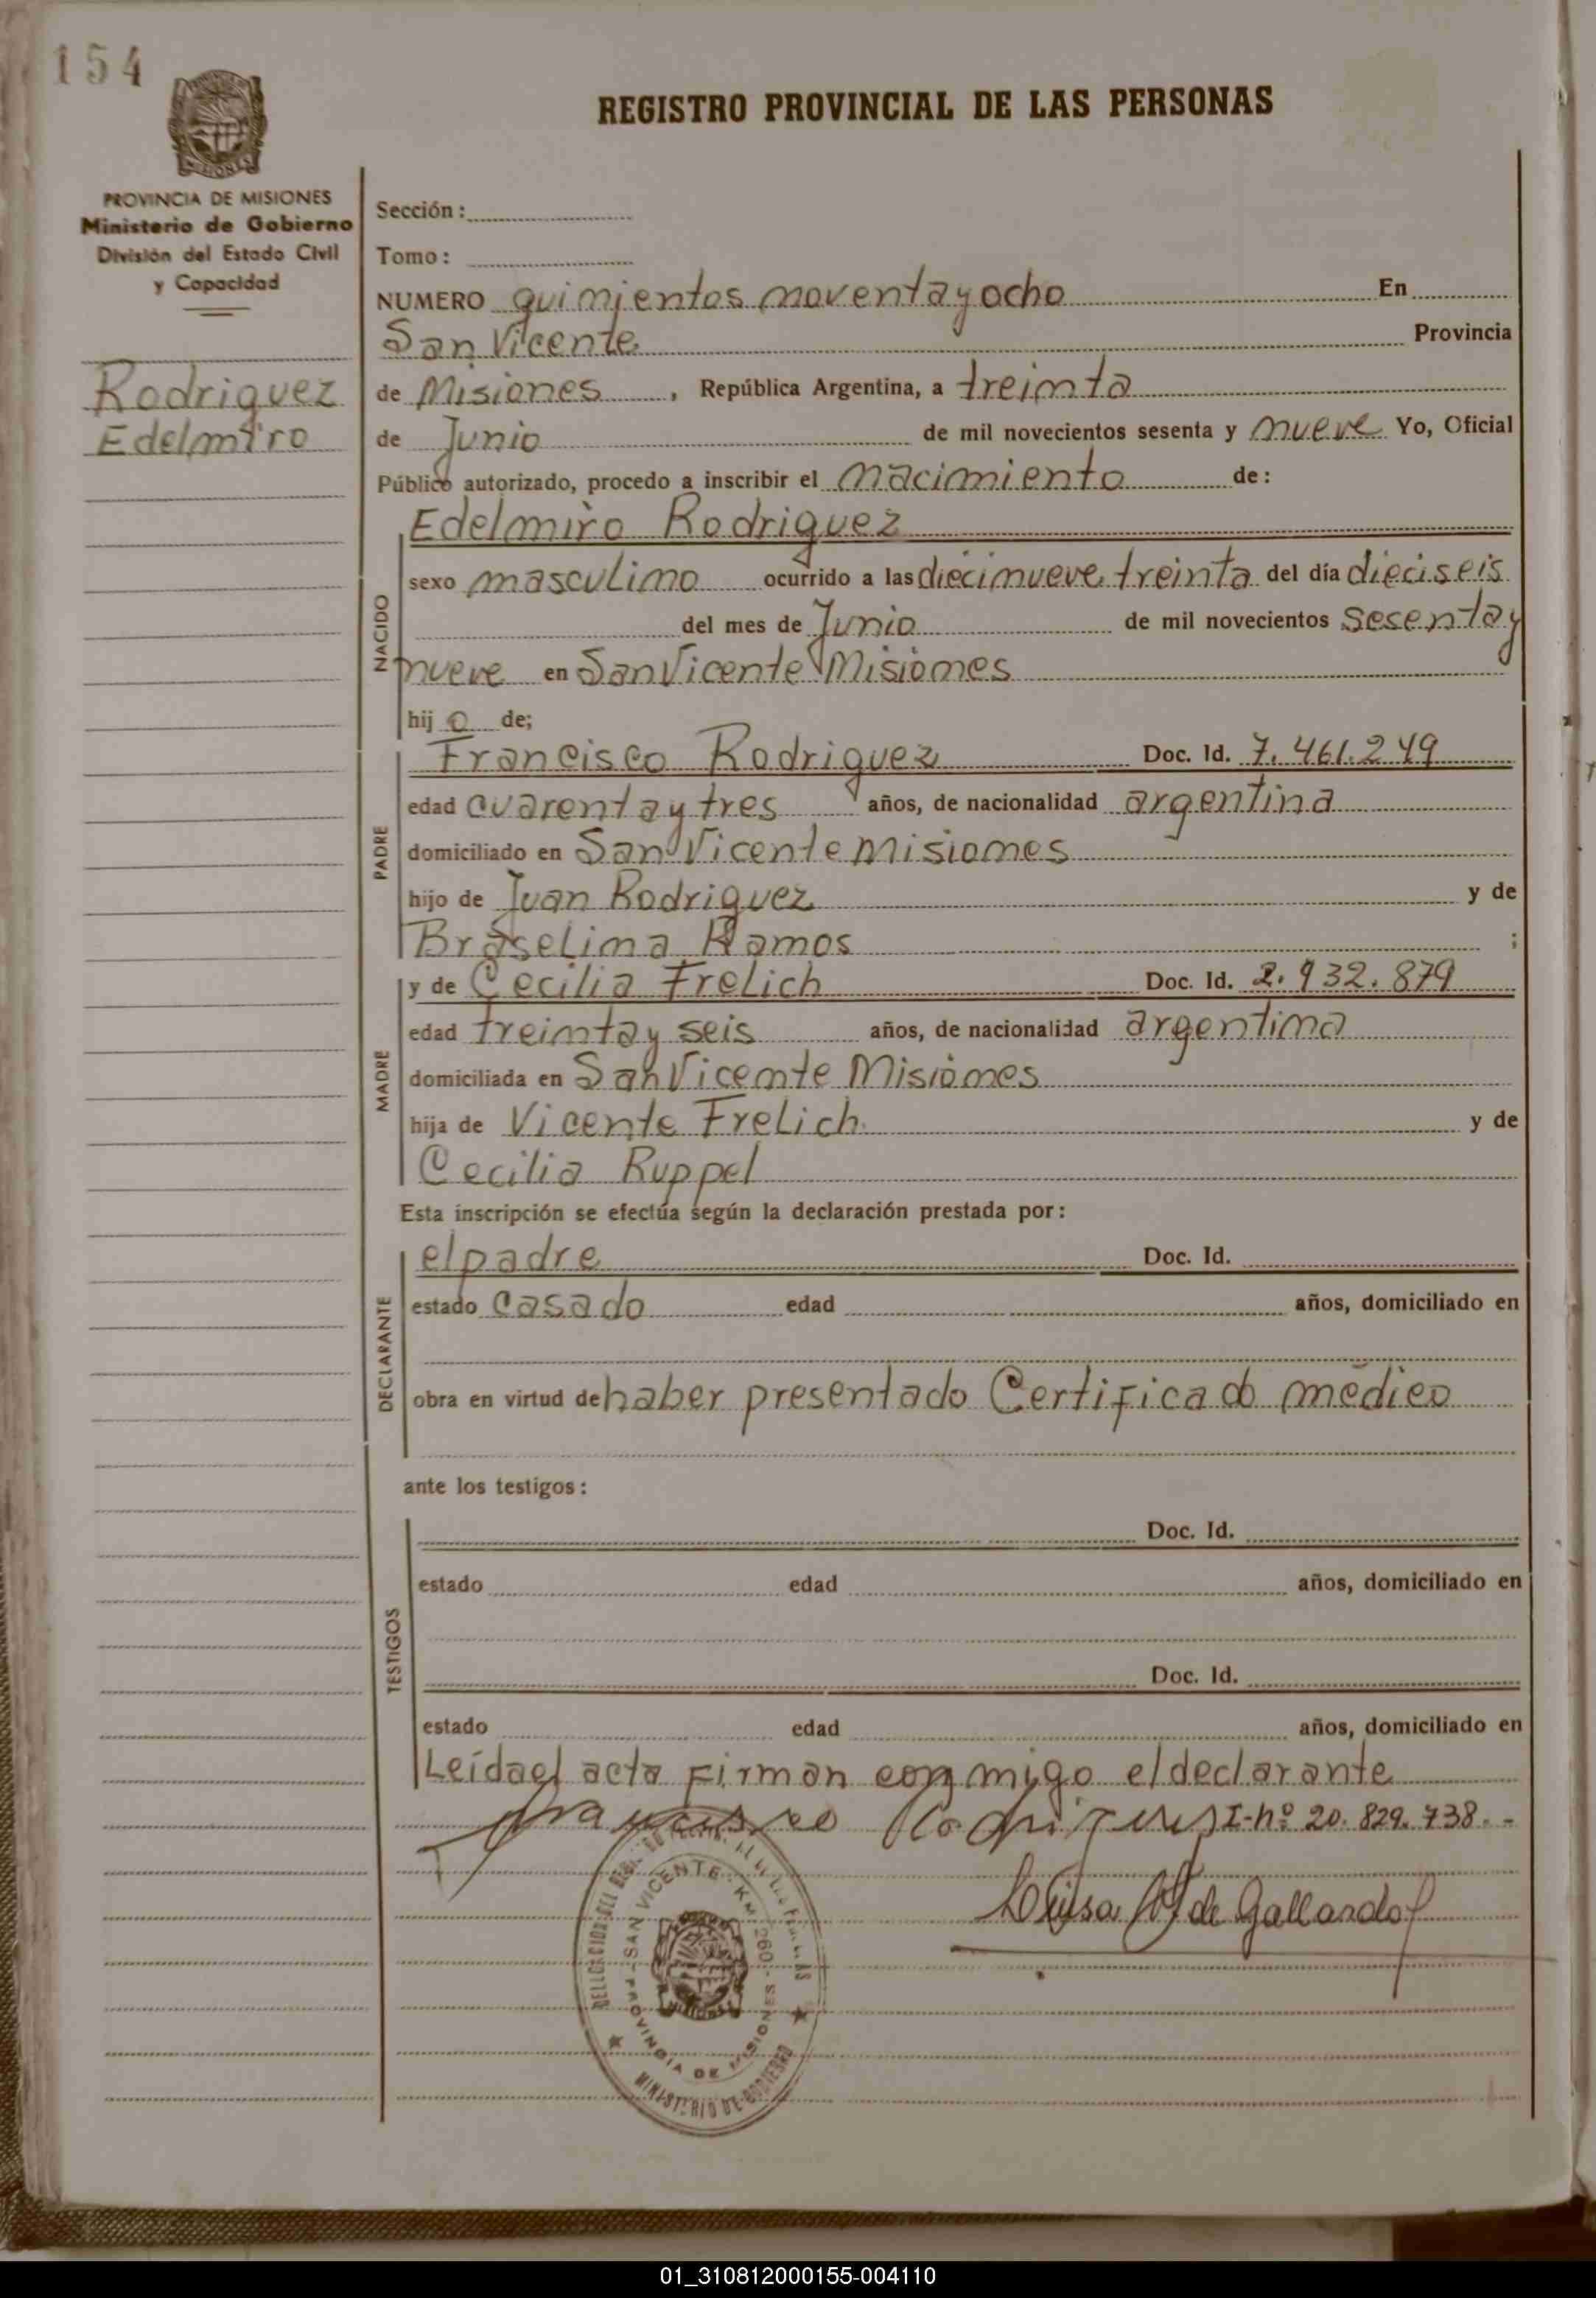 154
REGISTRO PROVINCIAL DE LAS PERSONAS
PROVINCIA DE MISIONES
Ministerio de Gobierno
División del Estado Civil
y Capacidad
Rodriguez
Edelmiro
Sección:
Tomo:
NUMERO quinientos noventa y ocho En
San Vicente Provincia
de Misiones, República Argentina, a treinta
de Junio de mil novecientos sesenta y nueve Yo, Oficial
Público autorizado, procedo a inscribir el nacimiento de:
NACIDO
Edelmiro Rodriguez
sexo masculino ocurrido a las diecinueve treinta del día dieciseis
del mes de Junio de mil novecientos sesenta y
nueve en San Vicente Misiones
hijo de;
PADRE
Francisco Rodriguez Doc. Id. 7.461.249
edad cuarenta y tres años, de nacionalidad argentina
domiciliado en San Vicente Misiones
hijo de Juan Rodriguez y de
Braselina Ramos ;
MADRE
y de Cecilia Frelich Doc. Id. 2.932.879
edad treinta y seis años, de nacionalidad argentina
domiciliada en San Vicente Misiones
hija de Vicente Frelich y de
Cecilia Ruppel
Esta inscripción se efectúa según la declaración prestada por:
DECLARANTE
el padre Doc. Id.
estado casado edad años, domiciliado en
obra en virtud de haber presentado Certificado médico
ante los testigos:
TESTIGOS
Doc. Id.
estado edad años, domiciliado en
Doc. Id.
estado edad años, domiciliado en
Leída el acta firman conmigo el declarante
Francisco Rodriguez I-nº 20.829.738.-
Luisa de Gallardo
SAN VICENTE - KM 260 -
PROVINCIA DE MISIONES
MINISTERIO DE GOBIERNO
01_310812000155-004110